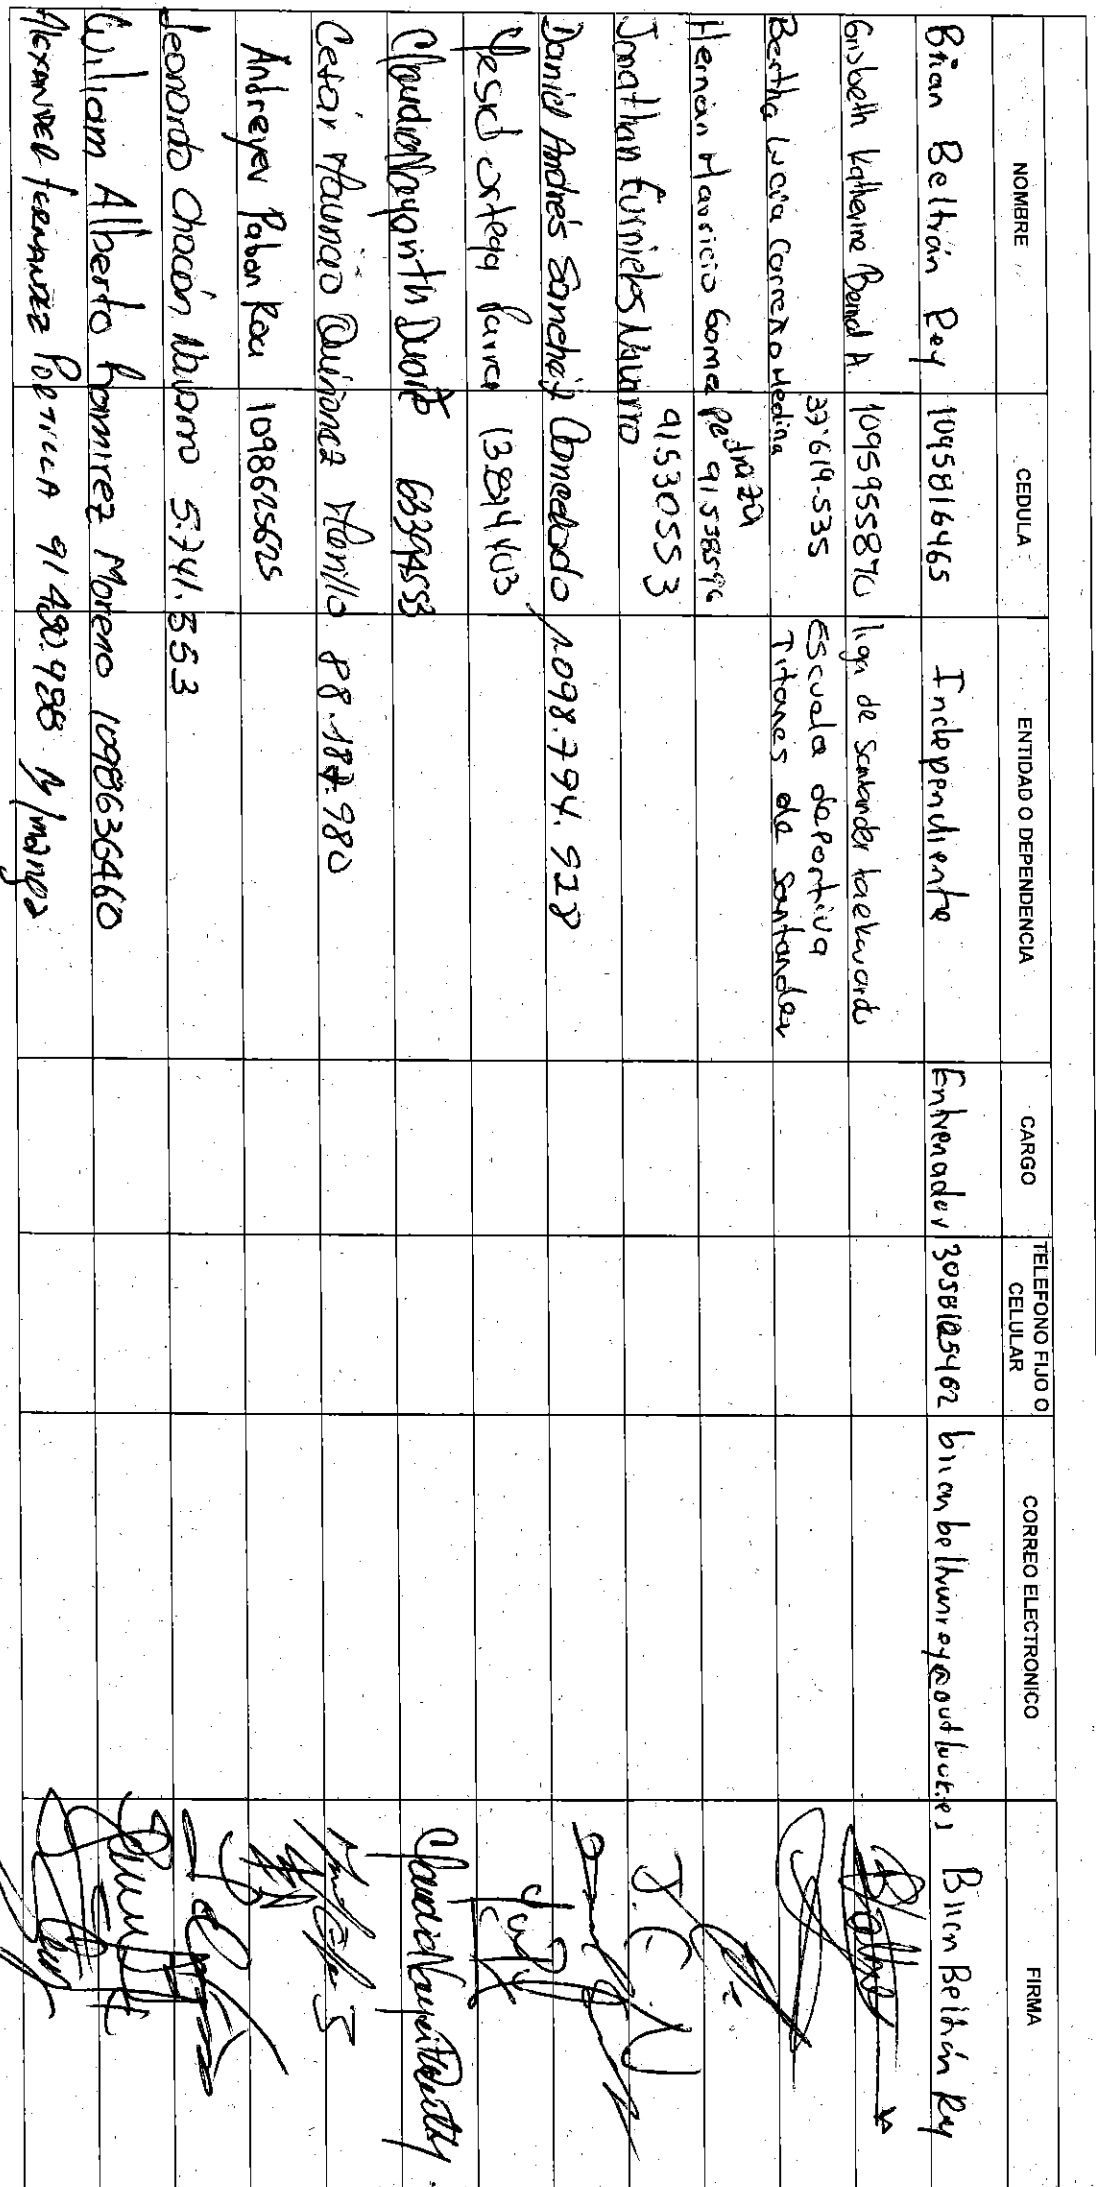 NOMBRE CEDULA ENTIDAD O DEPENDENCIA CARGO TELEFONO FIJO O CELULAR CORREO ELECTRONICO FIRMA
Brian Beltrán Rey 1095816465 Independiente Entrenador brianbeltranrey@outlook.es Brian Beltrán Rey
Gisbeth Katherine Bernal A. 1095955870 liga de Santander taekwondo
Bertha Lucia Carreño Medina 37'619.535 Escuela deportiva
Titanes de Santander
Hernán Mauricio Gomez pedraza 91538596
Jonathan Navarro 91.530553 J.C.N
Daniel Andrés Sanchez 1.098.794.528
Yesid ortega 13.844403
Claudia Nayarith Duarte 63394553
Mauricio Quiñonez 88.187.980
Andreyev Pabon Roa 1098625625
Leonardo Chacón Navarro 5.741.553
William Alberto Ramirez Moreno 1098636460
ALEXANDER FERNANDEZ PORTILLA 91490.988 B/manga